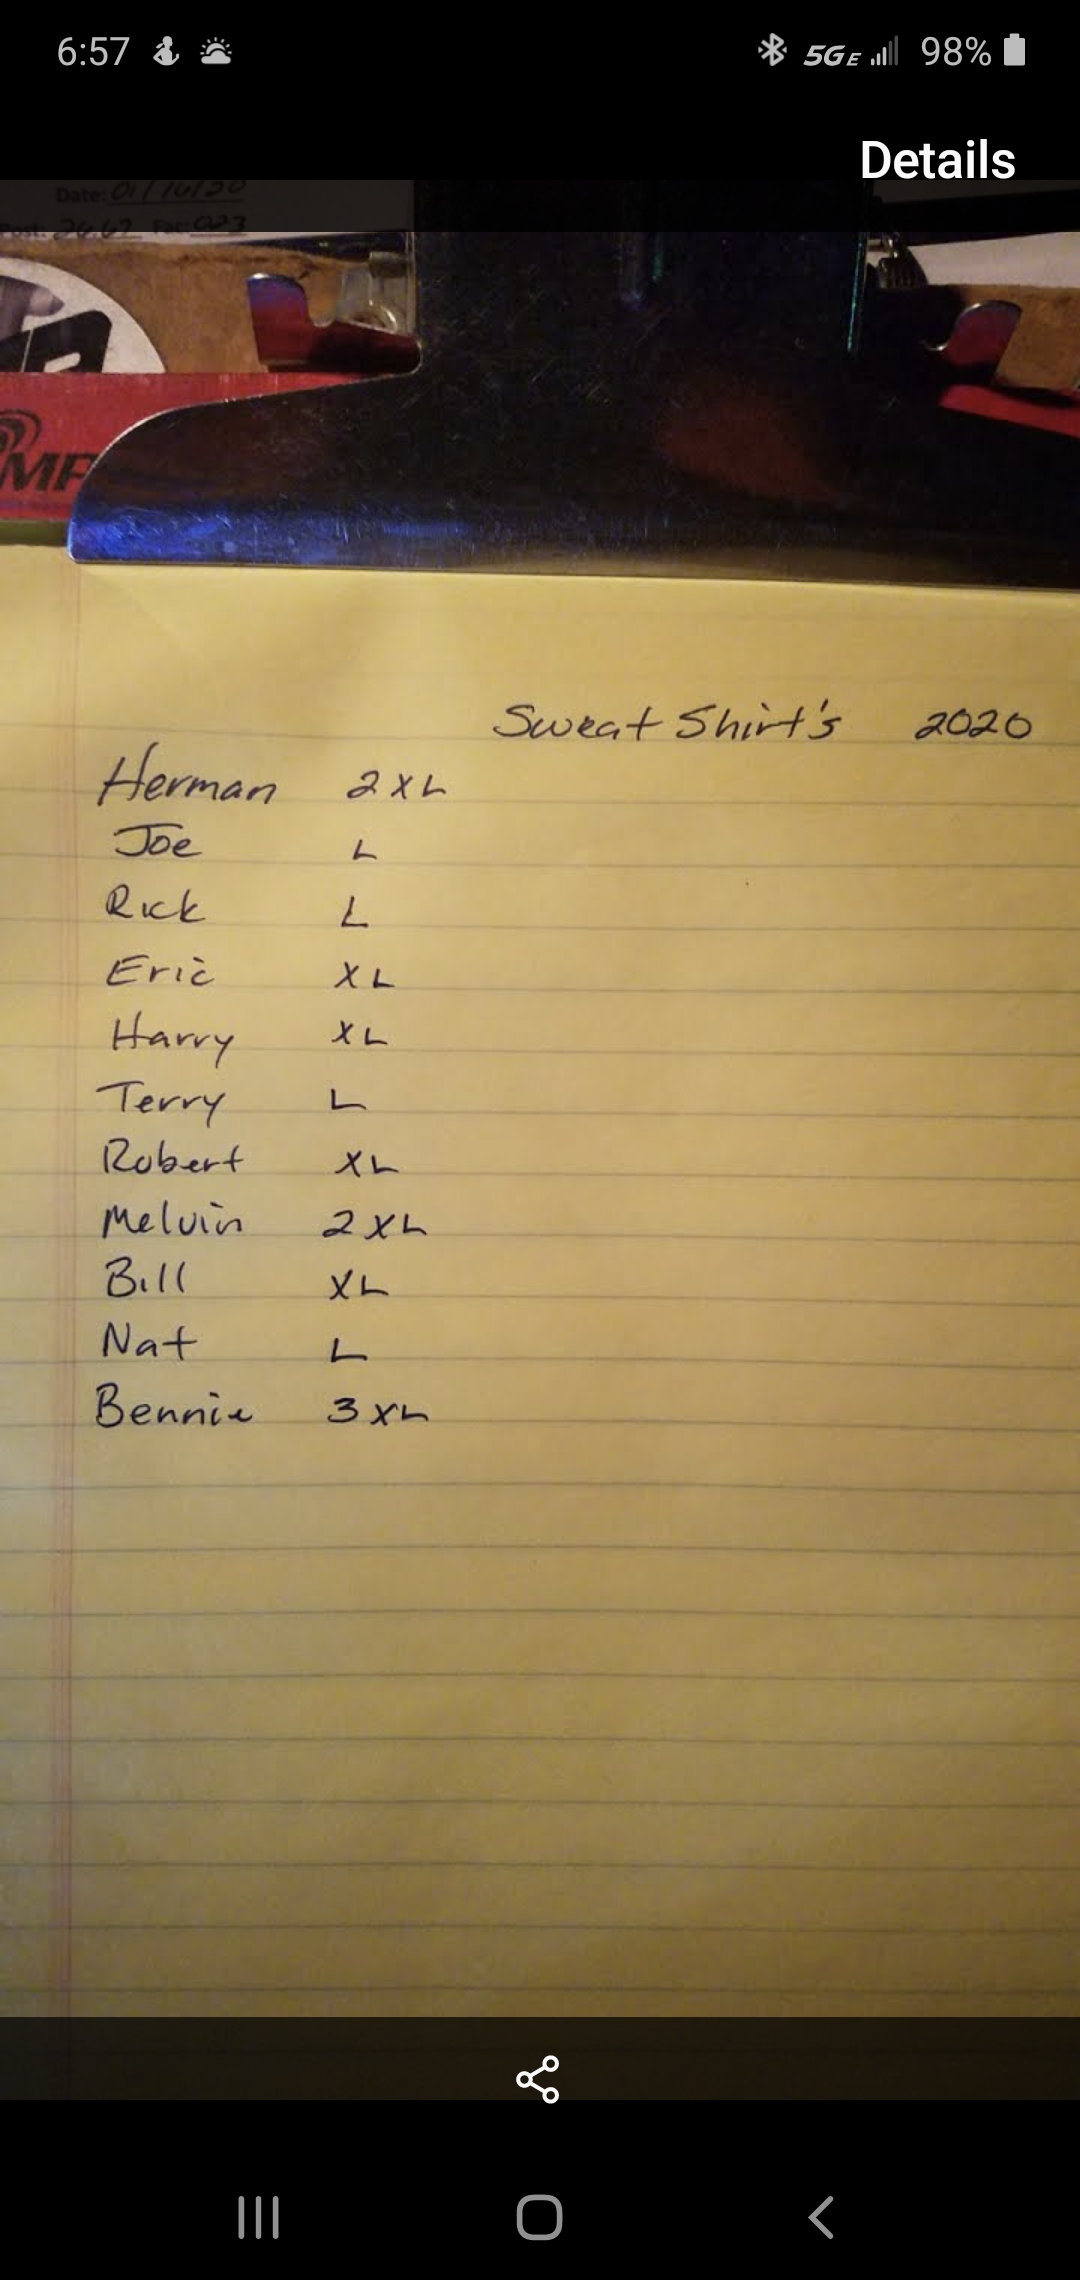 6:57 5GE 98%
Details
Date:
Fac: 023
Sweat Shirt's 2020
Herman 2XL
Joe L
Rick L
Eric XL
Harry XL
Terry L
Robert XL
Melvin 2XL
Bill XL
Nat L
Bennie 3XL